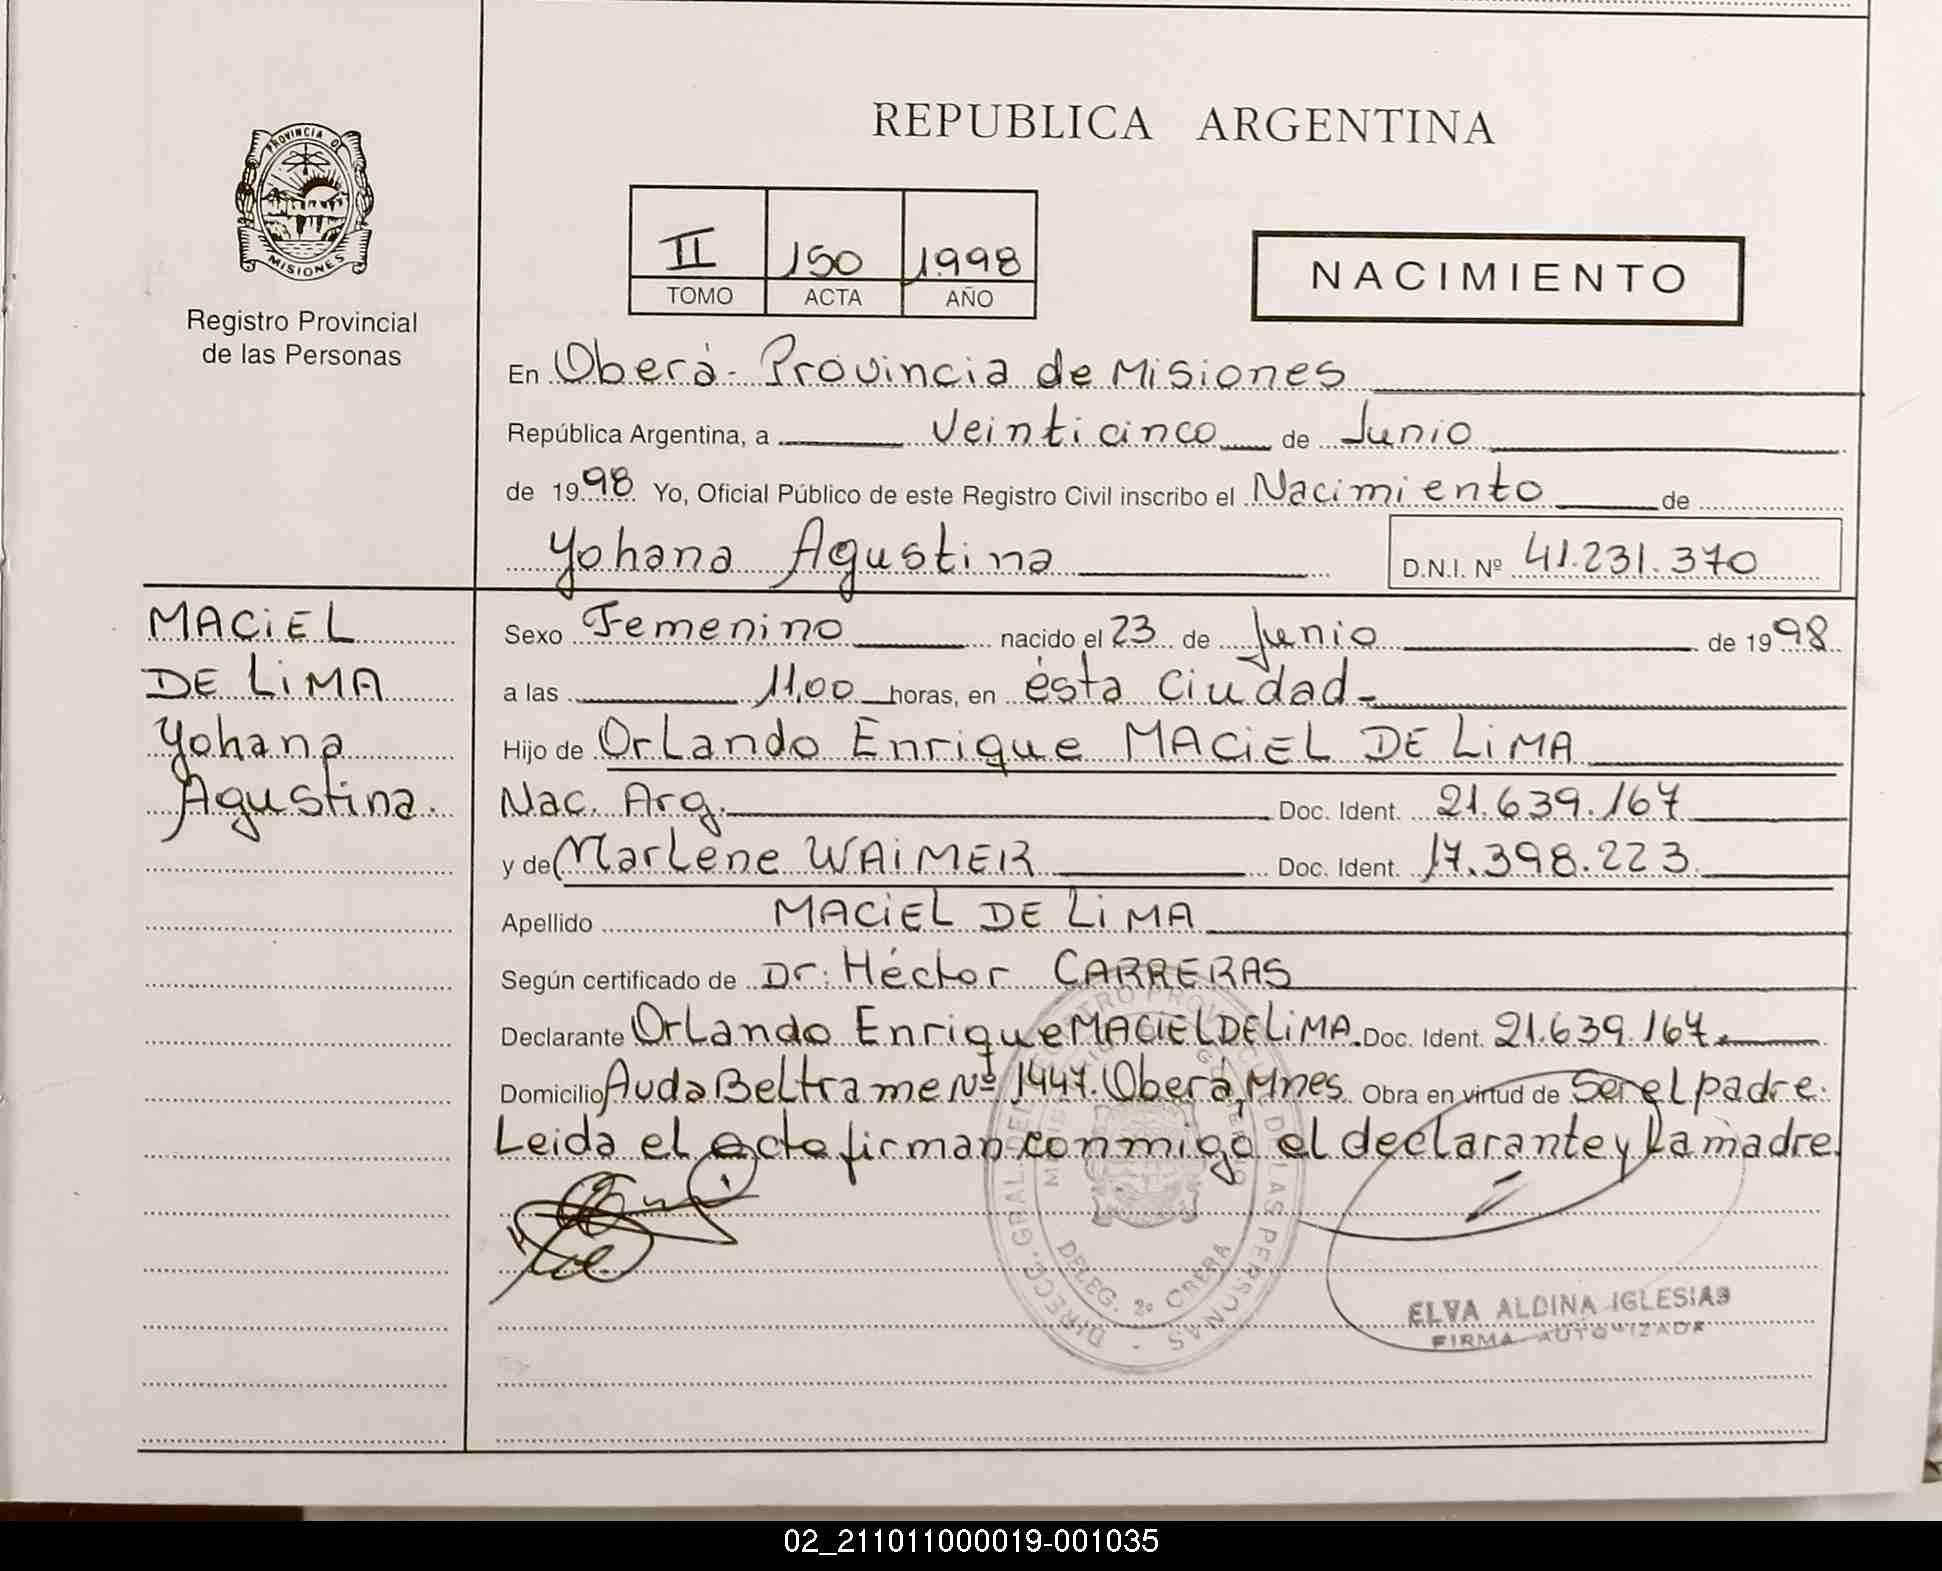 REPUBLICA ARGENTINA
PROVINCIA DE
MISIONES
Registro Provincial
de las Personas
II 150 1998
TOMO ACTA AÑO
NACIMIENTO
En Oberá - Provincia de Misiones
República Argentina, a Veinticinco de Junio
de 1998 Yo, Oficial Público de este Registro Civil inscribo el Nacimiento de
Yohana Agustina D.N.I. Nº 41.231.370
MACIEL
DE LIMA
Yohana
Agustina.
Sexo Femenino nacido el 23 de Junio de 1998
a las 11,00 horas, en ésta Ciudad-
Hijo de Orlando Enrique MACIEL DE LIMA
Nac. Arg. Doc. Ident. 21.639.167
y de Marlene WAIMER Doc. Ident. 17.398.223
Apellido MACIEL DE LIMA
Según certificado de Dr: Héctor CARRERAS
Declarante Orlando Enrique MACIEL DE LIMA. Doc. Ident. 21.639.167
Domicilio Avda Beltrame Nº 1447. Oberá, Mnes. Obra en virtud de Ser el padre.
Leida el acta firman conmigo el declarante y la madre.
DIRECC. GRAL. DEL REGISTRO PROVINCIAL DE LAS PERSONAS
DELEG. 2º
ELVA ALDINA IGLESIAS
FIRMA AUTORIZADA
02_211011000019-001035